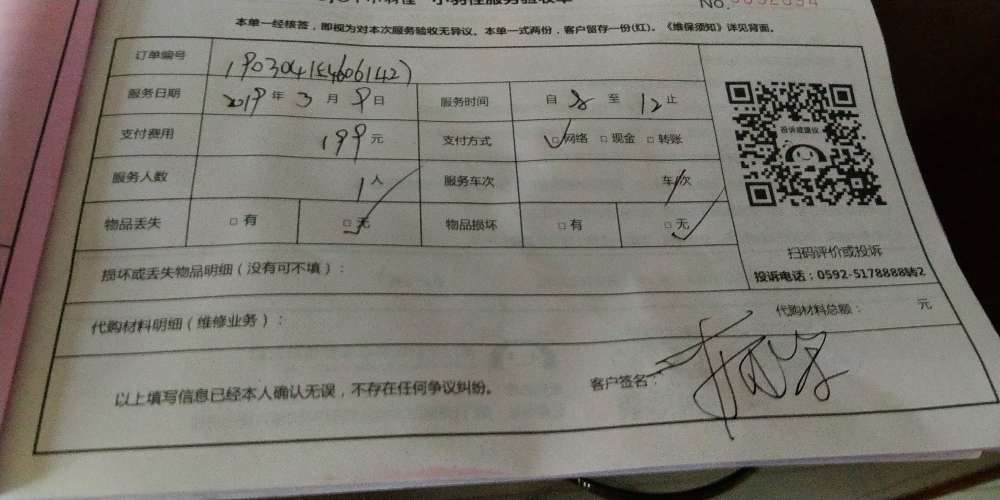 小羽佳服务验收单
No.
本单一经核签，即视为对本次服务验收无异议。本单一式两份，客户留存一份(红)。《维保须知》详见背面。
订单编号
服务日期 2019 年 3 月 9 日 服务时间 自 8 至 12 止
支付费用 199 元 支付方式 □网络 □现金 □转账
投诉或建议
服务人数 1 人 服务车次 车/次
物品丢失 □有 □无 物品损坏 □有 □无
扫码评价或投诉
损坏或丢失物品明细（没有可不填）：
投诉电话：0592-5178888转2
代购材料明细（维修业务）： 代购材料总额： 元
以上填写信息已经本人确认无误，不存在任何争议纠纷。 客户签名：